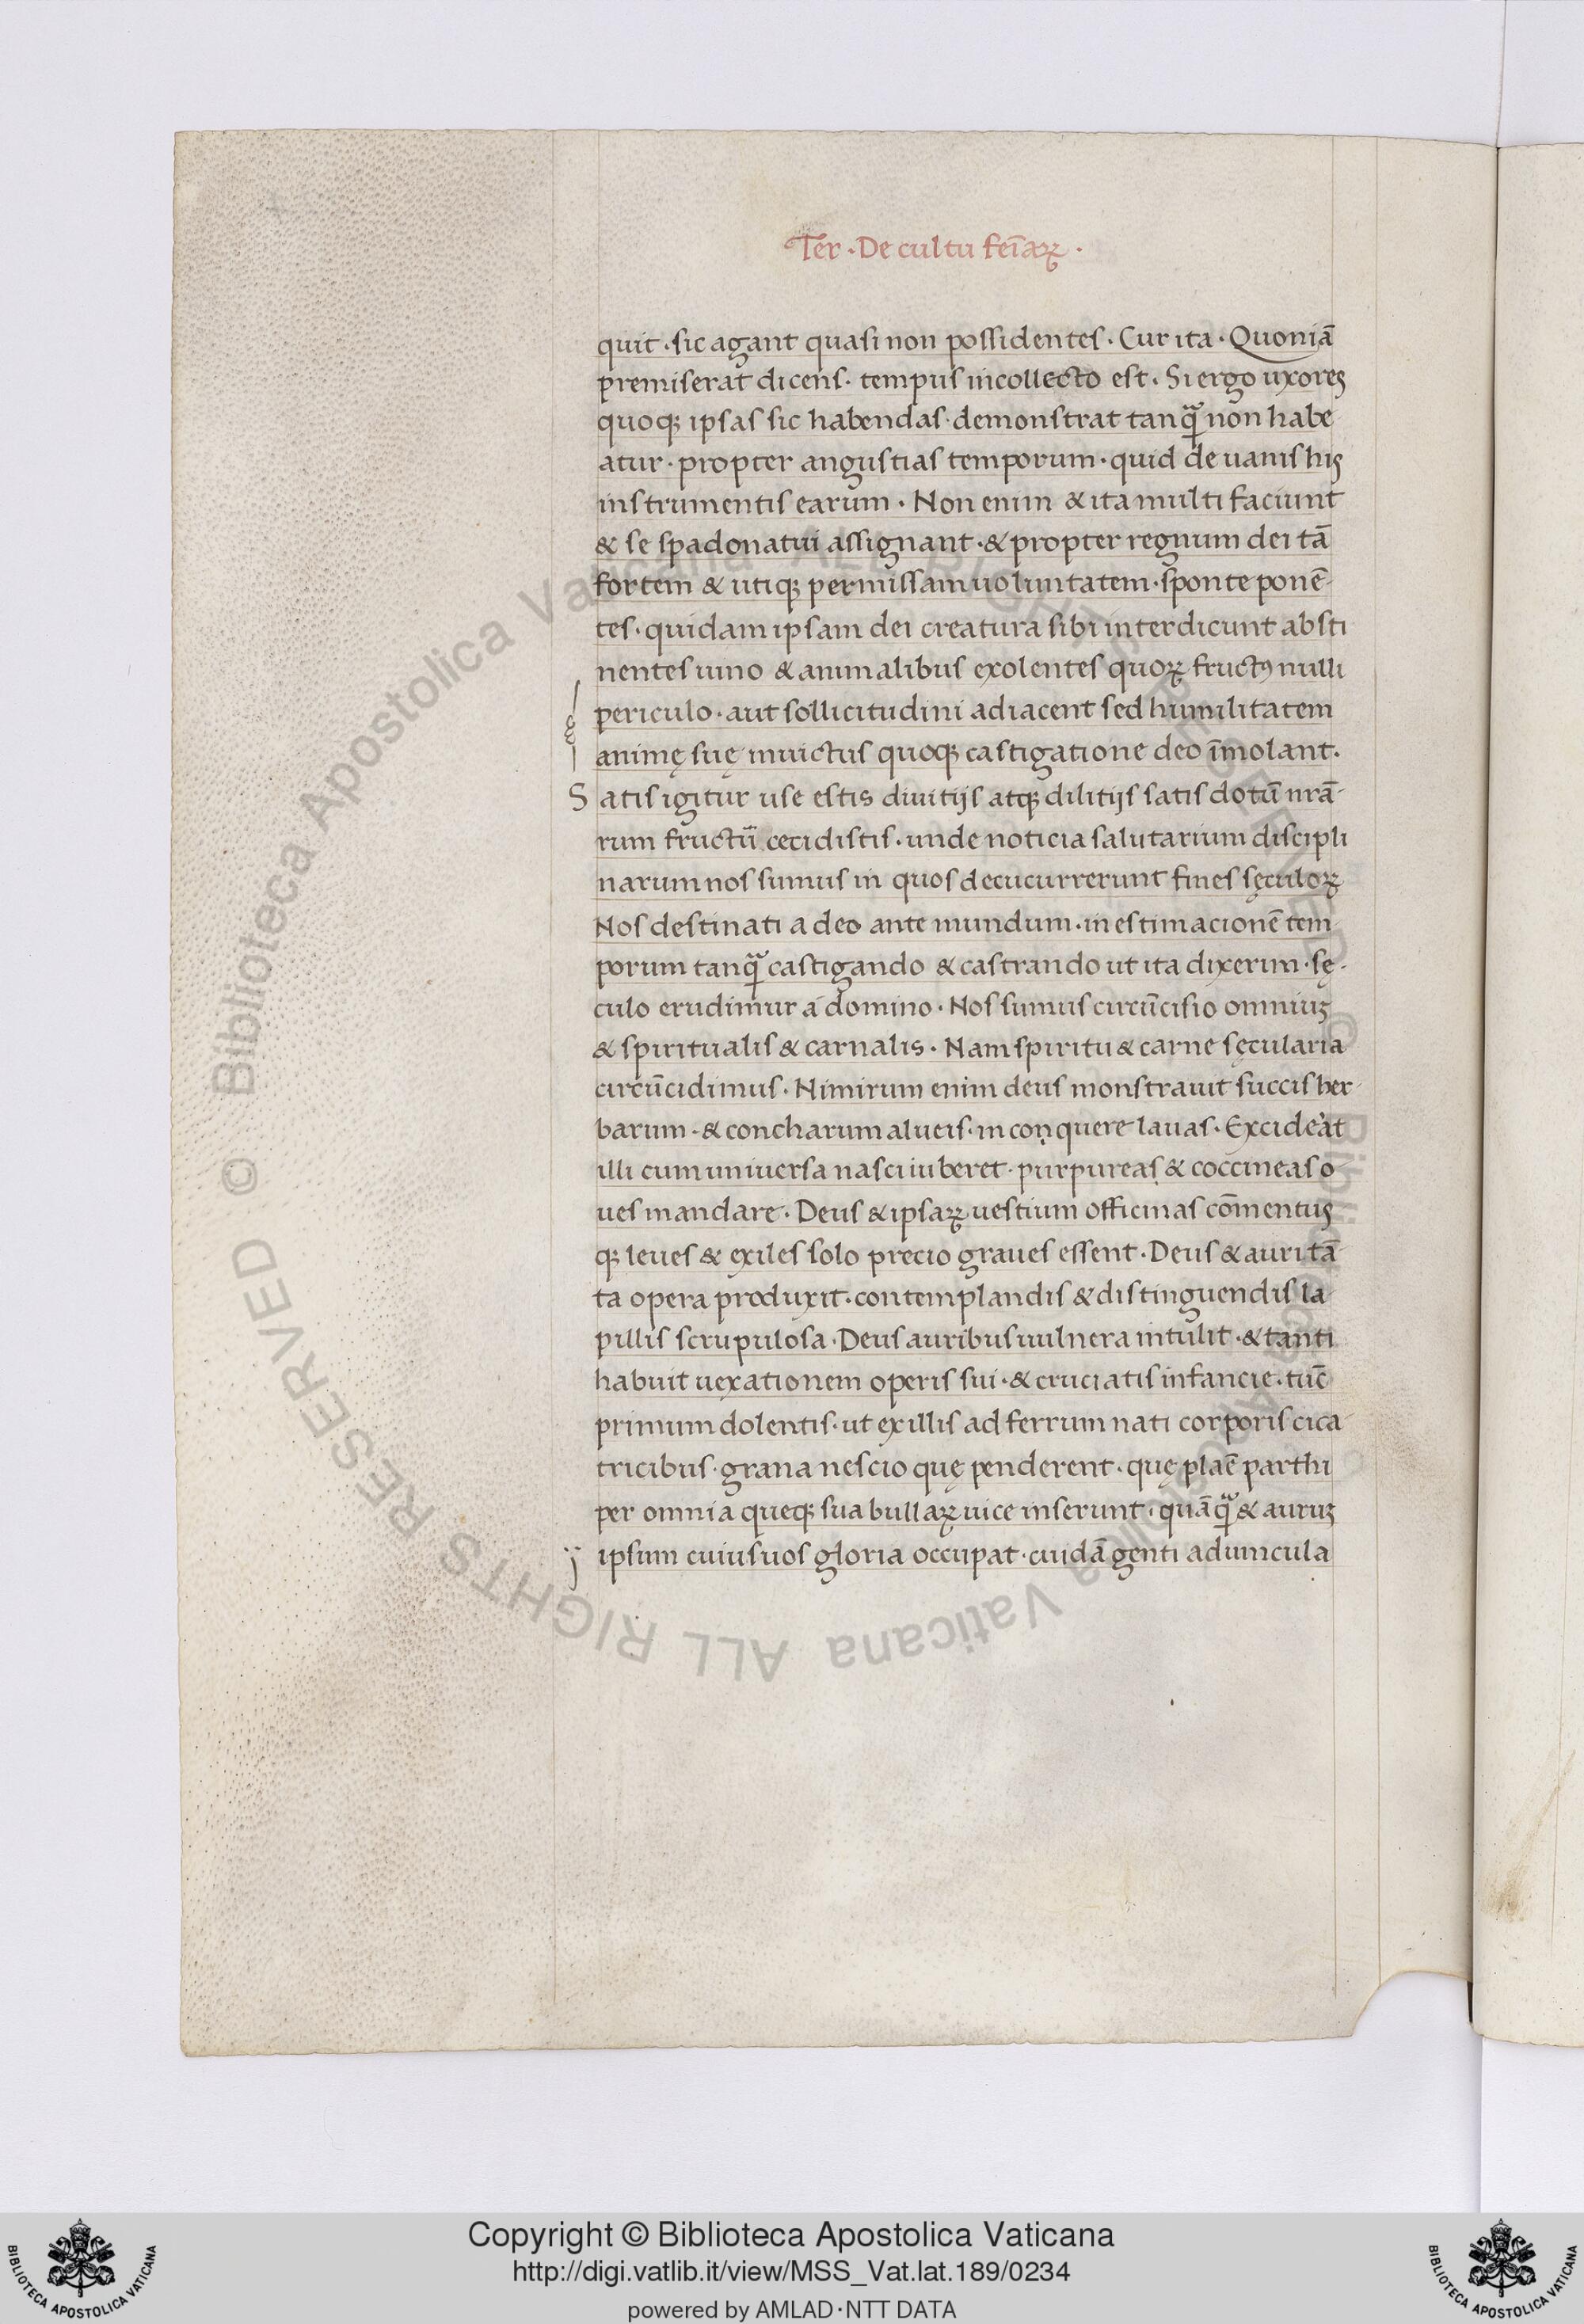 Ter · De cultu fei̅aꝝ ·
quit · sic agant quasi non possidentes · Cur ita · Quoniā
premiserat dicens · tempus in collecto est · Si ergo uxores
quoqꝫ ipsas sic habendas · demonstrat tanqᷓ non habe
atur · propter angustias temporum · quid de uanis his
instrumentis earum · Non enim & ita multi faciunt
& se spadonatui assignant · & propter regnum dei tā
fortem & utiqꝫ permissam uoluntatem · sponte ponē-
tes · quidam ipsam dei creatura sibi interdicunt absti
nentes uino & animalibus exolentes quoꝝ fructꝰ nulli
periculo · aut sollicitudini adiacent sed humilitatem
animę suę inuictus quoqꝫ castigatione deo īmolant ·
S atis igitur use estis diuitijs atqꝫ dilitijs satis dotū nrā-
rum fructū cecidistis · unde noticia salutarium discipli
narum nos sumus in quos decucurrerunt fines sęculoꝝ
Nos destinati a deo ante mundum · in estimacionē tem
porum tanqᷓ castigando & castrando ut ita dixerim · sę-
culo erudimur á domino · Nos sumus circūcisio omniuꝫ
& spiritualis & carnalis · Nam spiritu & carne sęcularia
circūcidimus · Nimirum enim deus monstrauit succis her-
barum · & concharum alueis · in conquere lauas · Excideàt
illi cum uniuersa nasci iuberet · purpureas & coccineas o
ues mandare · Deus & ipsaꝝ uestium officinas cōmentus
qꝫ leues & exiles solo precio graues essent · Deus & auri tā-
ta opera produxit · contemplandis & distinguendis la-
pillis scrupulosa · Deus auribus uulnera intulit · & tanti
habuit uexationem operis sui · & cruciatis infancie · tūc
primum dolentis · ut ex illis ad ferrum nati corporis cica-
tricibus · grana nescio quę penderent · quę plaē parthi
per omnia queqꝫ sua bullaꝝ uice inserunt · quāqᷓ & auruꝫ
ipsum cuius uos gloria occupat · cuidā genti ad uincula
© Biblioteca Apostolica Vaticana ALL RIGHTS RESERVED
© Biblioteca Apostolica Vaticana ALL RIGHTS RESERVED
Copyright © Biblioteca Apostolica Vaticana
http://digi.vatlib.it/view/MSS_Vat.lat.189/0234
powered by AMLAD·NTT DATA
BIBLIOTECA APOSTOLICA VATICANA
BIBLIOTECA APOSTOLICA VATICANA